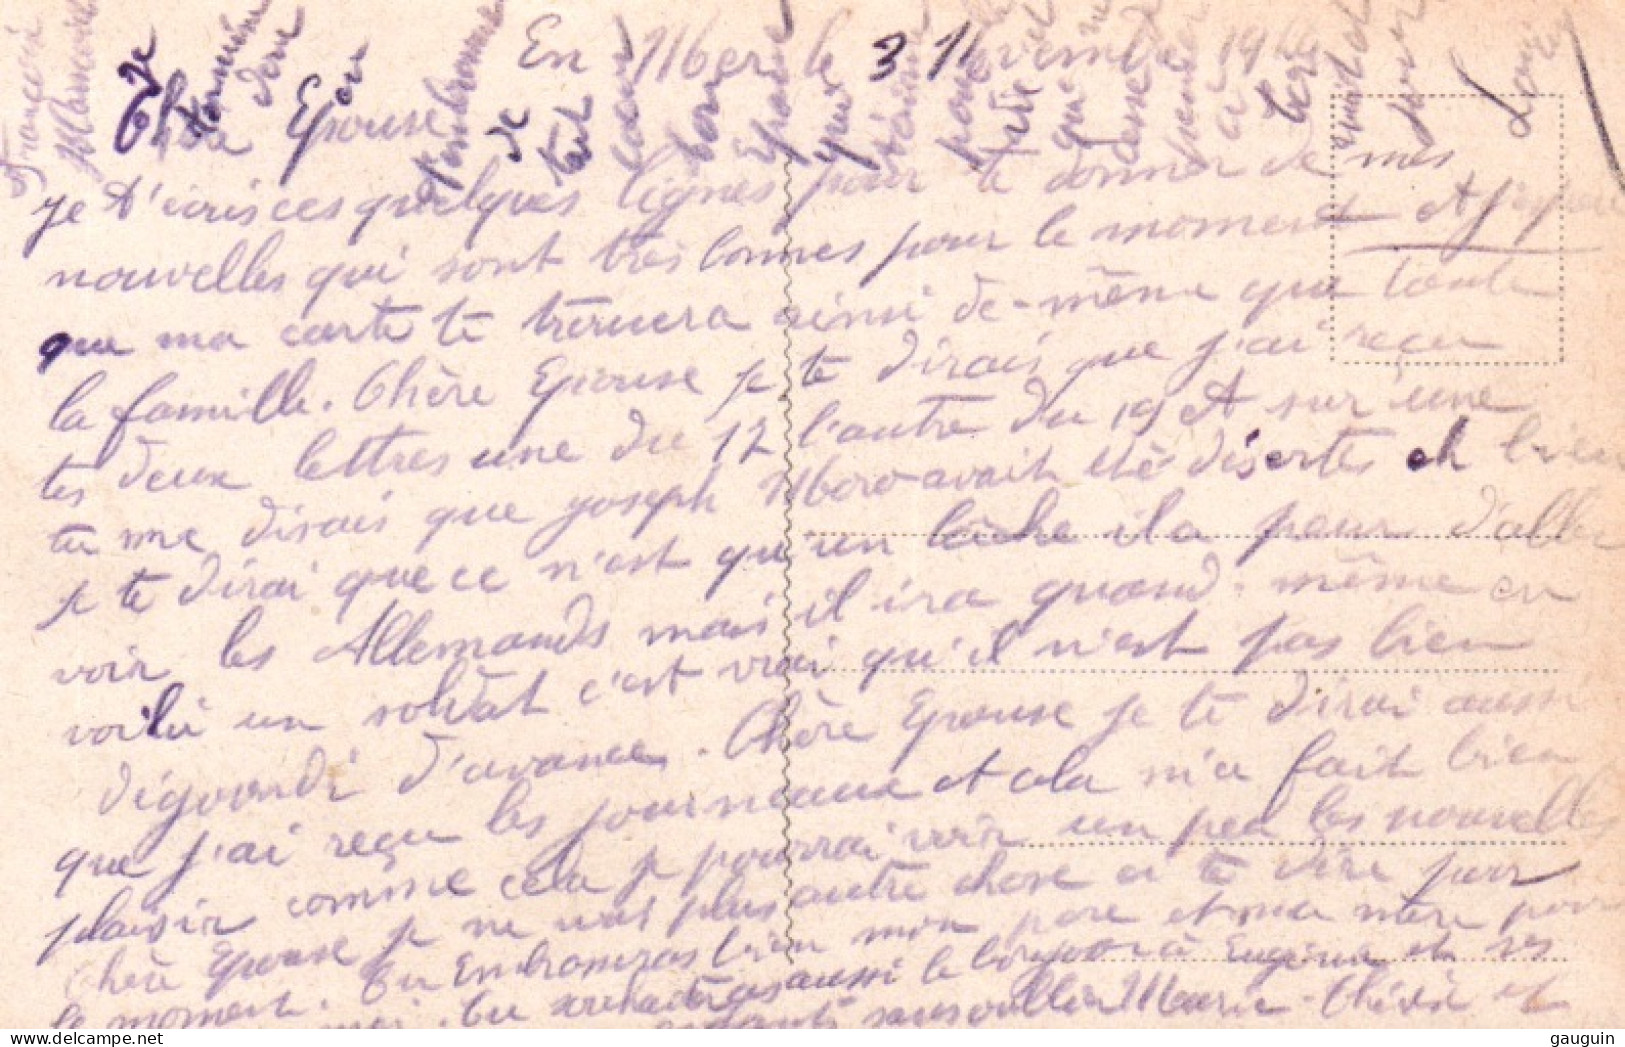 En Mer le 31 novembre 19
Chère Epouse
je t'écris ces quelques lignes pour te donner de mes
nouvelles qui sont très bonnes pour le moment et j'espère
que ma carte te trouvera ainsi de-même que toute
la famille. Chère Epouse je te dirais que j'ai reçu
tes deux lettres une du 17 l'autre du 19 et sur une
tu me disais que joseph Moro avait été désertés eh bien
je te dirai que ce n'est qu'un lâche il a peur d'aller
voir les Allemands mais il ira quand-même en
voilà un soldat c'est vrai qu'il n'est pas bien
dégourdi d'avance. Chère Epouse je te dirai aussi
que j'ai reçu les journeaux et cela m'a fait bien
plaisir comme cela je pourrai voir un peu les nouvelles
Chère Epouse je ne vois plus autre chose a te dire pour
le moment. Tu Embrasseras bien mon père et ma mère pour
moi. Tu souhaiteras aussi le bonjour à Eugénie et ses
enfants sans oublier Marie-Thérèse et
Francois
Marie
Je
termine
en
t'embrassant
de
tout
coeur
ton
Epoux
qui
pense
à
toi
Louis
gauguin